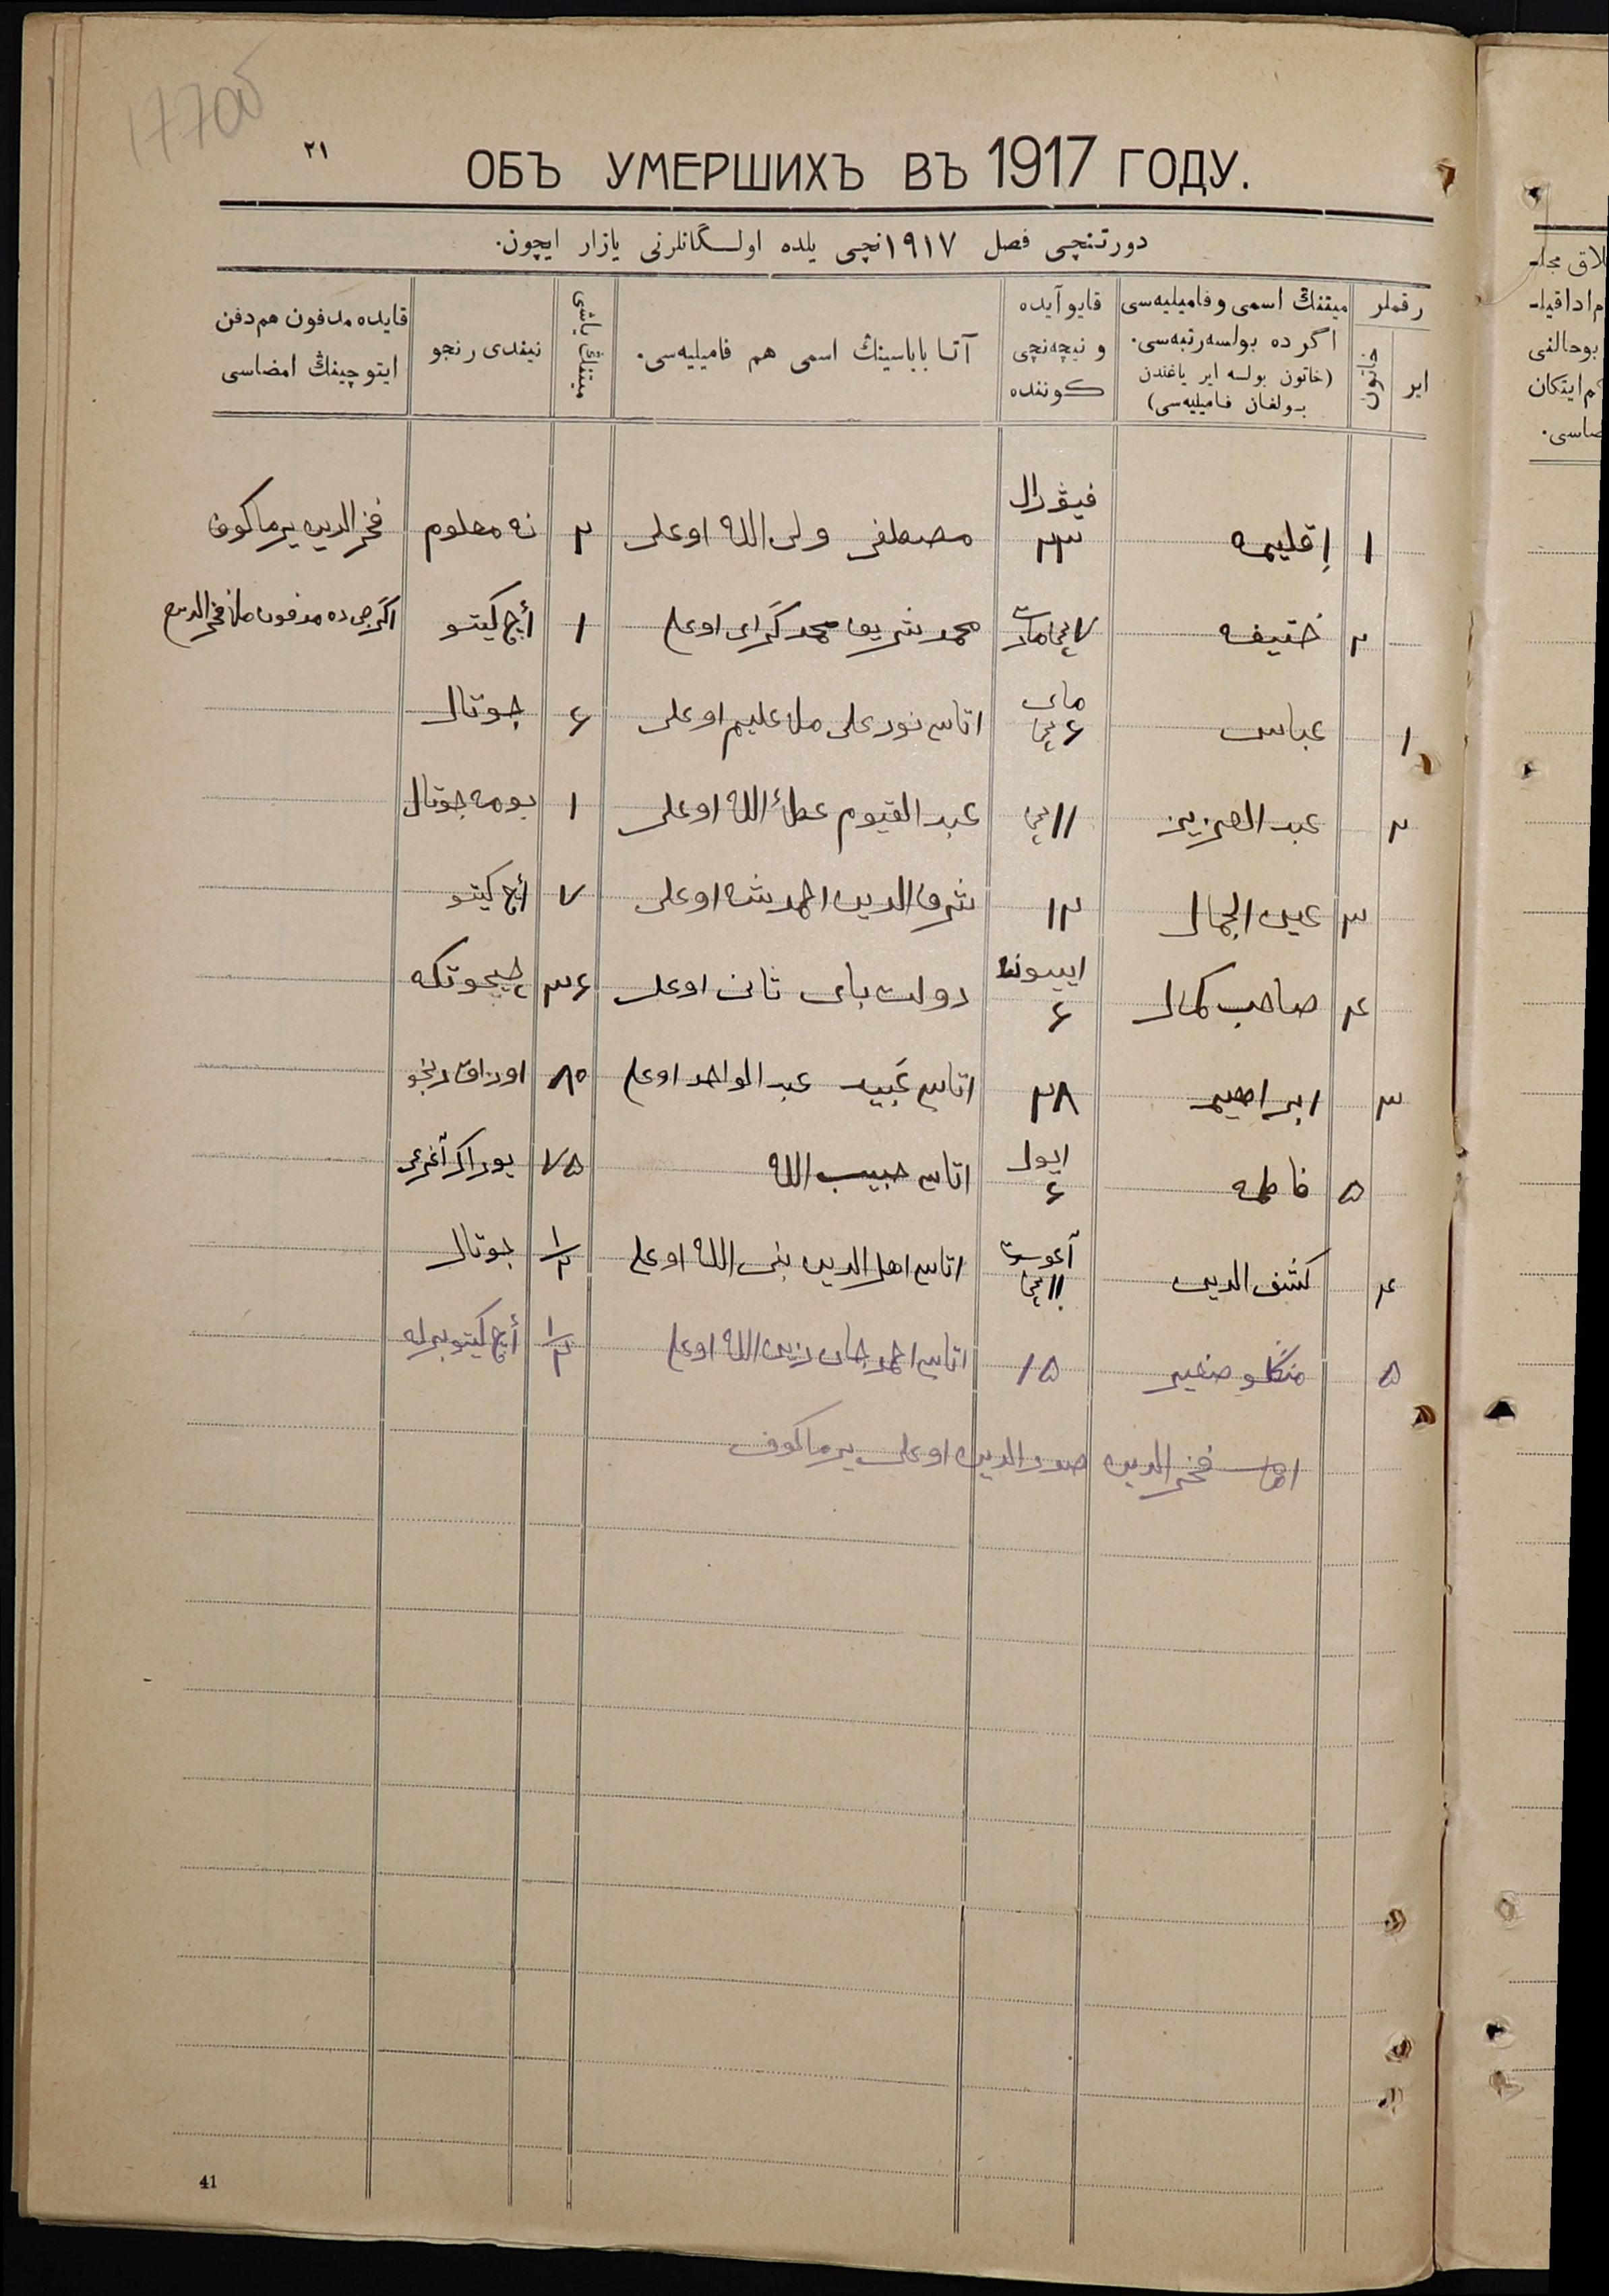 1770б
٢١
ОБЪ УМЕРШИХЪ ВЪ 1917 ГОДУ.
دورتنچی فصل ١٩١٧نچی یلده اولـگانلرنی یازار ایچون.
رقملر
ایر
خاتون
میتنڭ اسمی وفامیلیه‌سی
اگر ده بولسه رتبه‌سی.
(خاتون بولسه ایر یاغندن
بـولغان فامیلیه‌سی)
قایو آیده
و نیچه‌نچی
كـوننده
آتـا بـاباسینڭ اسمی هم فامیلیه‌سی.
میتنڭ یاشی
نیندی رنجو
قایده مدفون هم دفن
ایتوچینڭ امضاسی
١ اقلیمه فیۋرال ٢٣ مصطفی ولی الله اوغلی ٢ نه معلوم فخرالدین یرماکوف
٢ ختیفه ٧نچی مارت محمد شریف محمد گرای اوغلی ١ أچ کیتو
١ عباس مای ٤نچی اتاسی نورعلی ملا علیم اوغلی ٤ جوتال
٢ عبد العزیز ١١نچی عبد القیوم عطاء الله اوغلی ١ بومه جوتال
٣ عین الجمال ١٢ شرف الدین احمدشاه اوغلی ٧ أچ کیتو
٤ صاحب کمال اییون ٤ دولت بای اوغلی ٣٤ چیچوتکه
٣ ابراهیم ٢٨ اتاسی عبید عبد الواحد اوغلی ٨٥ اوزاق رنجو
٥ فاطمه ایول ٤ اتاسی حبیب الله ٧٥ یوراک
٤ کشف الدین آغوست ١١نچی اتاسی اهل الدین اوغلی ١/٢ جوتال
٥ صغیر ١٥ اتاسی احمدجان زین الله اوغلی ١/٢ أچ کیتو برله
امام فخر الدین صدر الدین اوغلی یرماکوف
41
لاق مجلـ
م ادا قیلـ
بوحالنی
م ایتکان
ضاسی.